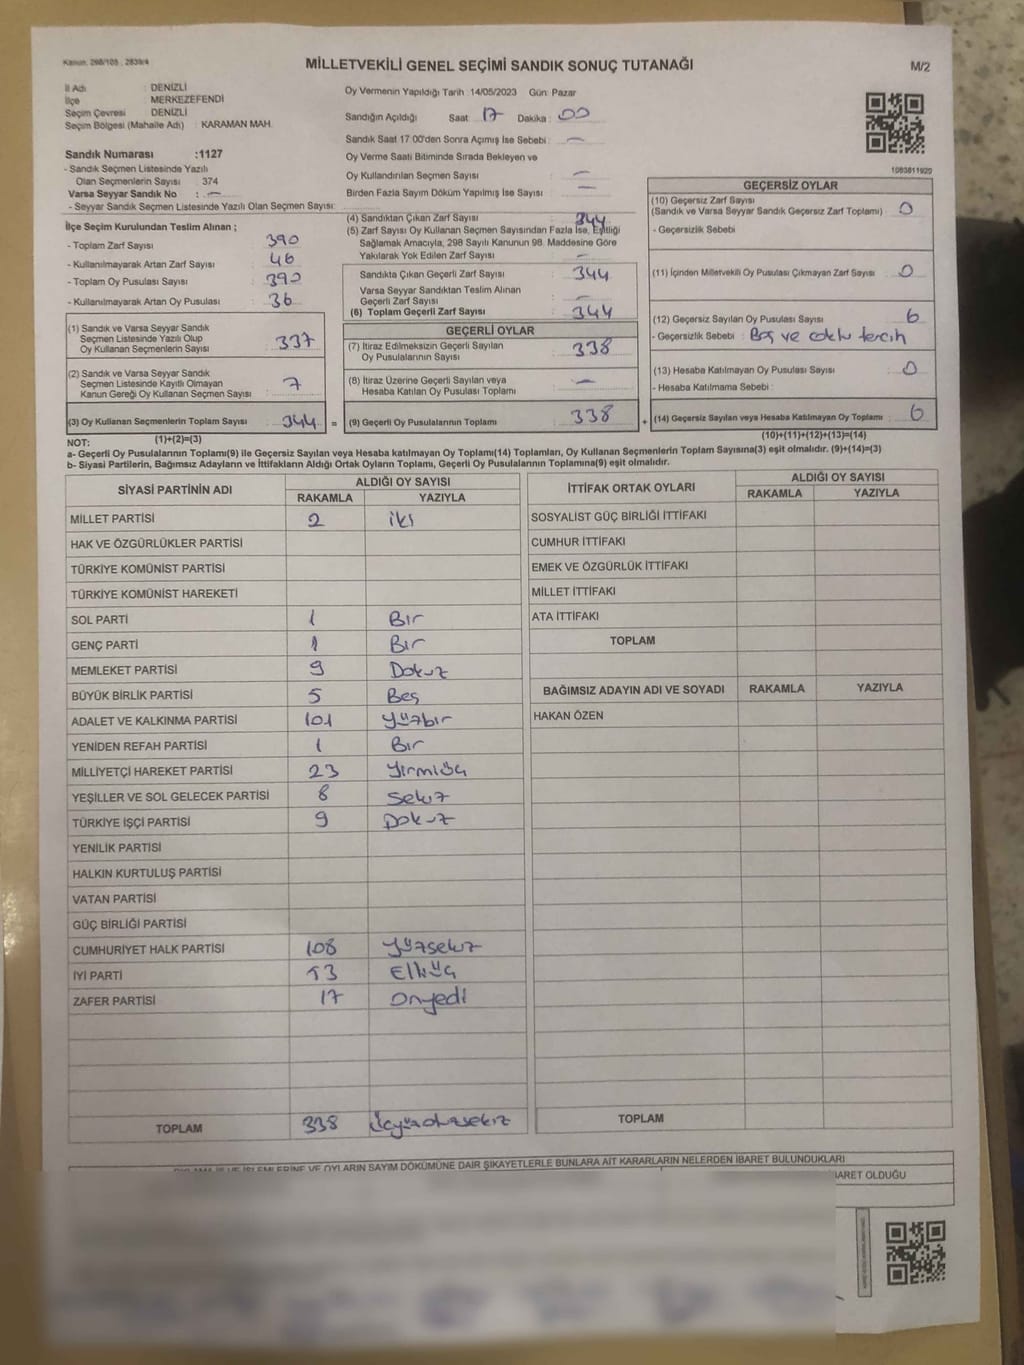 Kanun, 298/105 , 2839/4
MİLLETVEKİLİ GENEL SEÇİMİ SANDIK SONUÇ TUTANAĞI
M/2
İl Adı : DENİZLİ
İlçe : MERKEZEFENDİ
Seçim Çevresi : DENİZLİ
Seçim Bölgesi (Mahalle Adı) : KARAMAN MAH.
Oy Vermenin Yapıldığı Tarih :14/05/2023 Gün: Pazar
Sandığın Açıldığı Saat 17 Dakika : 00
Sandık Saat 17:00'den Sonra Açımış İse Sebebi : —
Oy Verme Saati Bitiminde Sırada Bekleyen ve
Oy Kullandırılan Seçmen Sayısı : —
Birden Fazla Sayım Döküm Yapılmış İse Sayısı : —
1093811920
Sandık Numarası :1127
- Sandık Seçmen Listesinde Yazılı
Olan Seçmenlerin Sayısı : 374
Varsa Seyyar Sandık No : —
- Seyyar Sandık Seçmen Listesinde Yazılı Olan Seçmen Sayısı:
İlçe Seçim Kurulundan Teslim Alınan ;
- Toplam Zarf Sayısı : 390
- Kullanılmayarak Artan Zarf Sayısı : 46
- Toplam Oy Pusulası Sayısı : 390
- Kullanılmayarak Artan Oy Pusulası : 36
(1) Sandık ve Varsa Seyyar Sandık
Seçmen Listesinde Yazılı Olup
Oy Kullanan Seçmenlerin Sayısı : 337
(2) Sandık ve Varsa Seyyar Sandık
Seçmen Listesinde Kayıtlı Olmayan
Kanun Gereği Oy Kullanan Seçmen Sayısı : 7
(3) Oy Kullanan Seçmenlerin Toplam Sayısı : 344 =
(4) Sandıktan Çıkan Zarf Sayısı : 344
(5) Zarf Sayısı Oy Kullanan Seçmen Sayısından Fazla İse, Eşitliği
Sağlamak Amacıyla, 298 Sayılı Kanunun 98. Maddesine Göre
Yakılarak Yok Edilen Zarf Sayısı : —
Sandıkta Çıkan Geçerli Zarf Sayısı : 344
Varsa Seyyar Sandıktan Teslim Alınan
Geçerli Zarf Sayısı : —
(6) Toplam Geçerli Zarf Sayısı : 344
GEÇERLİ OYLAR
(7) İtiraz Edilmeksizin Geçerli Sayılan
Oy Pusulalarının Sayısı : 338
(8) İtiraz Üzerine Geçerli Sayılan veya
Hesaba Katılan Oy Pusulası Toplamı : —
(9) Geçerli Oy Pusulalarının Toplamı : 338 +
GEÇERSİZ OYLAR
(10) Geçersiz Zarf Sayısı
(Sandık ve Varsa Seyyar Sandık Geçersiz Zarf Toplamı) : 0
- Geçersizlik Sebebi
(11) İçinden Milletvekili Oy Pusulası Çıkmayan Zarf Sayısı : 0
(12) Geçersiz Sayılan Oy Pusulası Sayısı : 6
- Geçersizlik Sebebi : Boş ve çoklu tercih
(13) Hesaba Katılmayan Oy Pusulası Sayısı : 0
- Hesaba Katılmama Sebebi :
(14) Geçersiz Sayılan veya Hesaba Katılmayan Oy Toplamı : 6
NOT: (1)+(2)=(3) (10)+(11)+(12)+(13)=(14)
a- Geçerli Oy Pusulalarının Toplamı(9) ile Geçersiz Sayılan veya Hesaba katılmayan Oy Toplamı(14) Toplamları, Oy Kullanan Seçmenlerin Toplam Sayısına(3) eşit olmalıdır. (9)+(14)=(3)
b- Siyasi Partilerin, Bağımsız Adayların ve İttifakların Aldığı Ortak Oyların Toplamı, Geçerli Oy Pusulalarının Toplamına(9) eşit olmalıdır.
SİYASİ PARTİNİN ADI ALDIĞI OY SAYISI
RAKAMLA YAZIYLA
MİLLET PARTİSİ 2 iki
HAK VE ÖZGÜRLÜKLER PARTİSİ
TÜRKİYE KOMÜNİST PARTİSİ
TÜRKİYE KOMÜNİST HAREKETİ
SOL PARTİ 1 Bir
GENÇ PARTİ 1 Bir
MEMLEKET PARTİSİ 9 Dokuz
BÜYÜK BİRLİK PARTİSİ 5 Beş
ADALET VE KALKINMA PARTİSİ 101 Yüzbir
YENİDEN REFAH PARTİSİ 1 Bir
MİLLİYETÇİ HAREKET PARTİSİ 23 Yirmiüç
YEŞİLLER VE SOL GELECEK PARTİSİ 8 Sekiz
TÜRKİYE İŞÇİ PARTİSİ 9 Dokuz
YENİLİK PARTİSİ
HALKIN KURTULUŞ PARTİSİ
VATAN PARTİSİ
GÜÇ BİRLİĞİ PARTİSİ
CUMHURİYET HALK PARTİSİ 108 Yüzsekiz
İYİ PARTİ 53 Elliüç
ZAFER PARTİSİ 17 Onyedi
TOPLAM 338 Üçyüzotuzsekiz
İTTİFAK ORTAK OYLARI ALDIĞI OY SAYISI
RAKAMLA YAZIYLA
SOSYALİST GÜÇ BİRLİĞİ İTTİFAKI
CUMHUR İTTİFAKI
EMEK VE ÖZGÜRLÜK İTTİFAKI
MİLLET İTTİFAKI
ATA İTTİFAKI
TOPLAM
BAĞIMSIZ ADAYIN ADI VE SOYADI RAKAMLA YAZIYLA
HAKAN ÖZEN
TOPLAM
VE OYLARIN SAYIM DÖKÜMÜNE DAİR ŞİKAYETLERLE BUNLARA AİT KARARLARIN NELERDEN İBARET BULUNDUKLARI
İBARET OLDUĞU